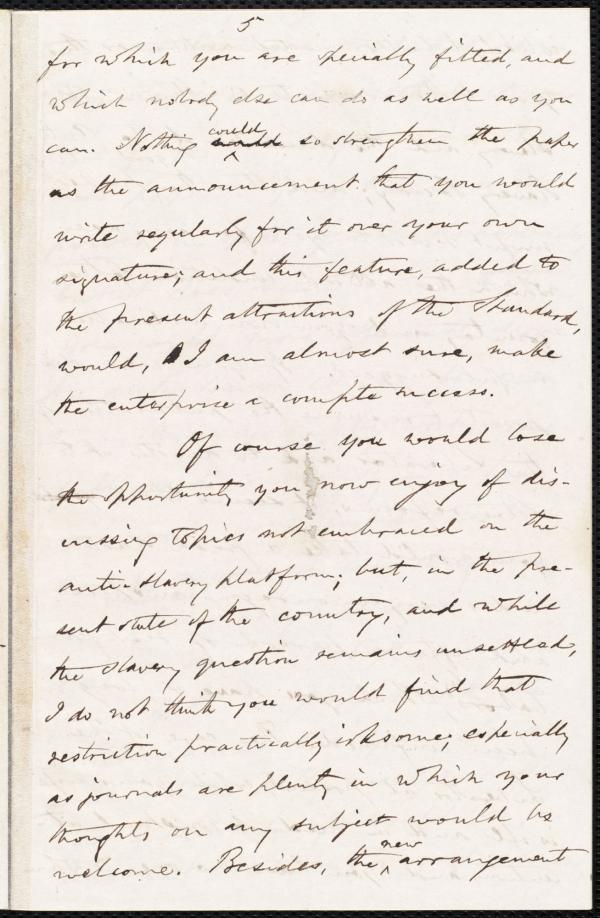 5
for which you are specially fitted, and
which nobody else can do as well as you
can. Nothing would could so strengthen the paper
as the announcement that you would
write regularly for it over your own
signature; and this feature, added to
the present attractions of the Standard,
would, I am almost sure, make
the enterprise a complete success.
Of course you would lose
the opportunity you now enjoy of dis-
cussing topics not embraced on the
anti-slavery platform; but, in the pre-
sent state of the country, and while
the slavery question remains unsettled,
I do not think you would find that
restriction practically irksome, especially
as journals are plenty in which your
thoughts on any subject would be
welcome. Besides, the new arrangement